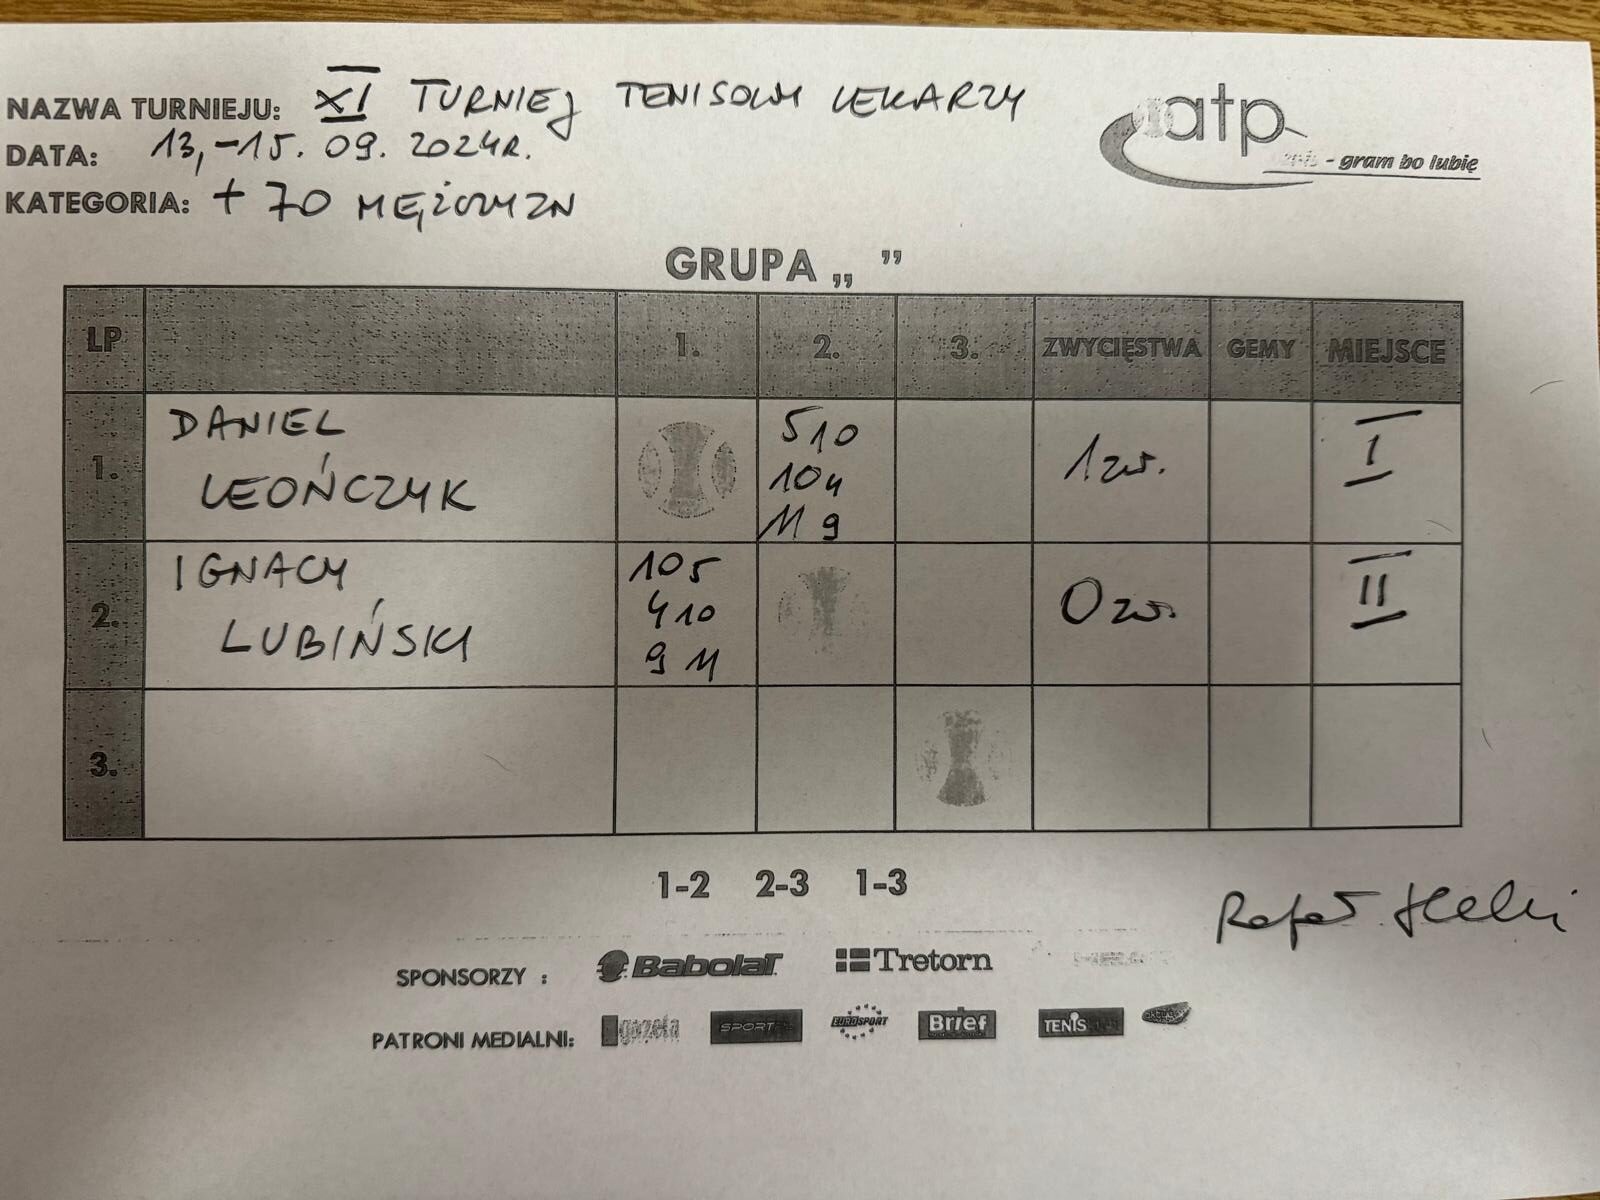 NAZWA TURNIEJU: XI TURNIEJ TENISOWY LEKARZY
DATA: 13,-15. 09. 2024R.
KATEGORIA: + 70 MĘŻCZYZN
atp
- gram bo lubię
GRUPA „ ”
LP 1. 2. 3. ZWYCIĘSTWA GEMY MIEJSCE
1. DANIEL LEOŃCZYK 5 10 10 4 11 9 1 zw. I
2. IGNACY LUBIŃSKI 10 5 4 10 9 11 0 zw. II
3.
1-2 2-3 1-3
Rafał
SPONSORZY : Babolat Tretorn
PATRONI MEDIALNI: gazeta SPORT EUROSPORT Brief TENIS